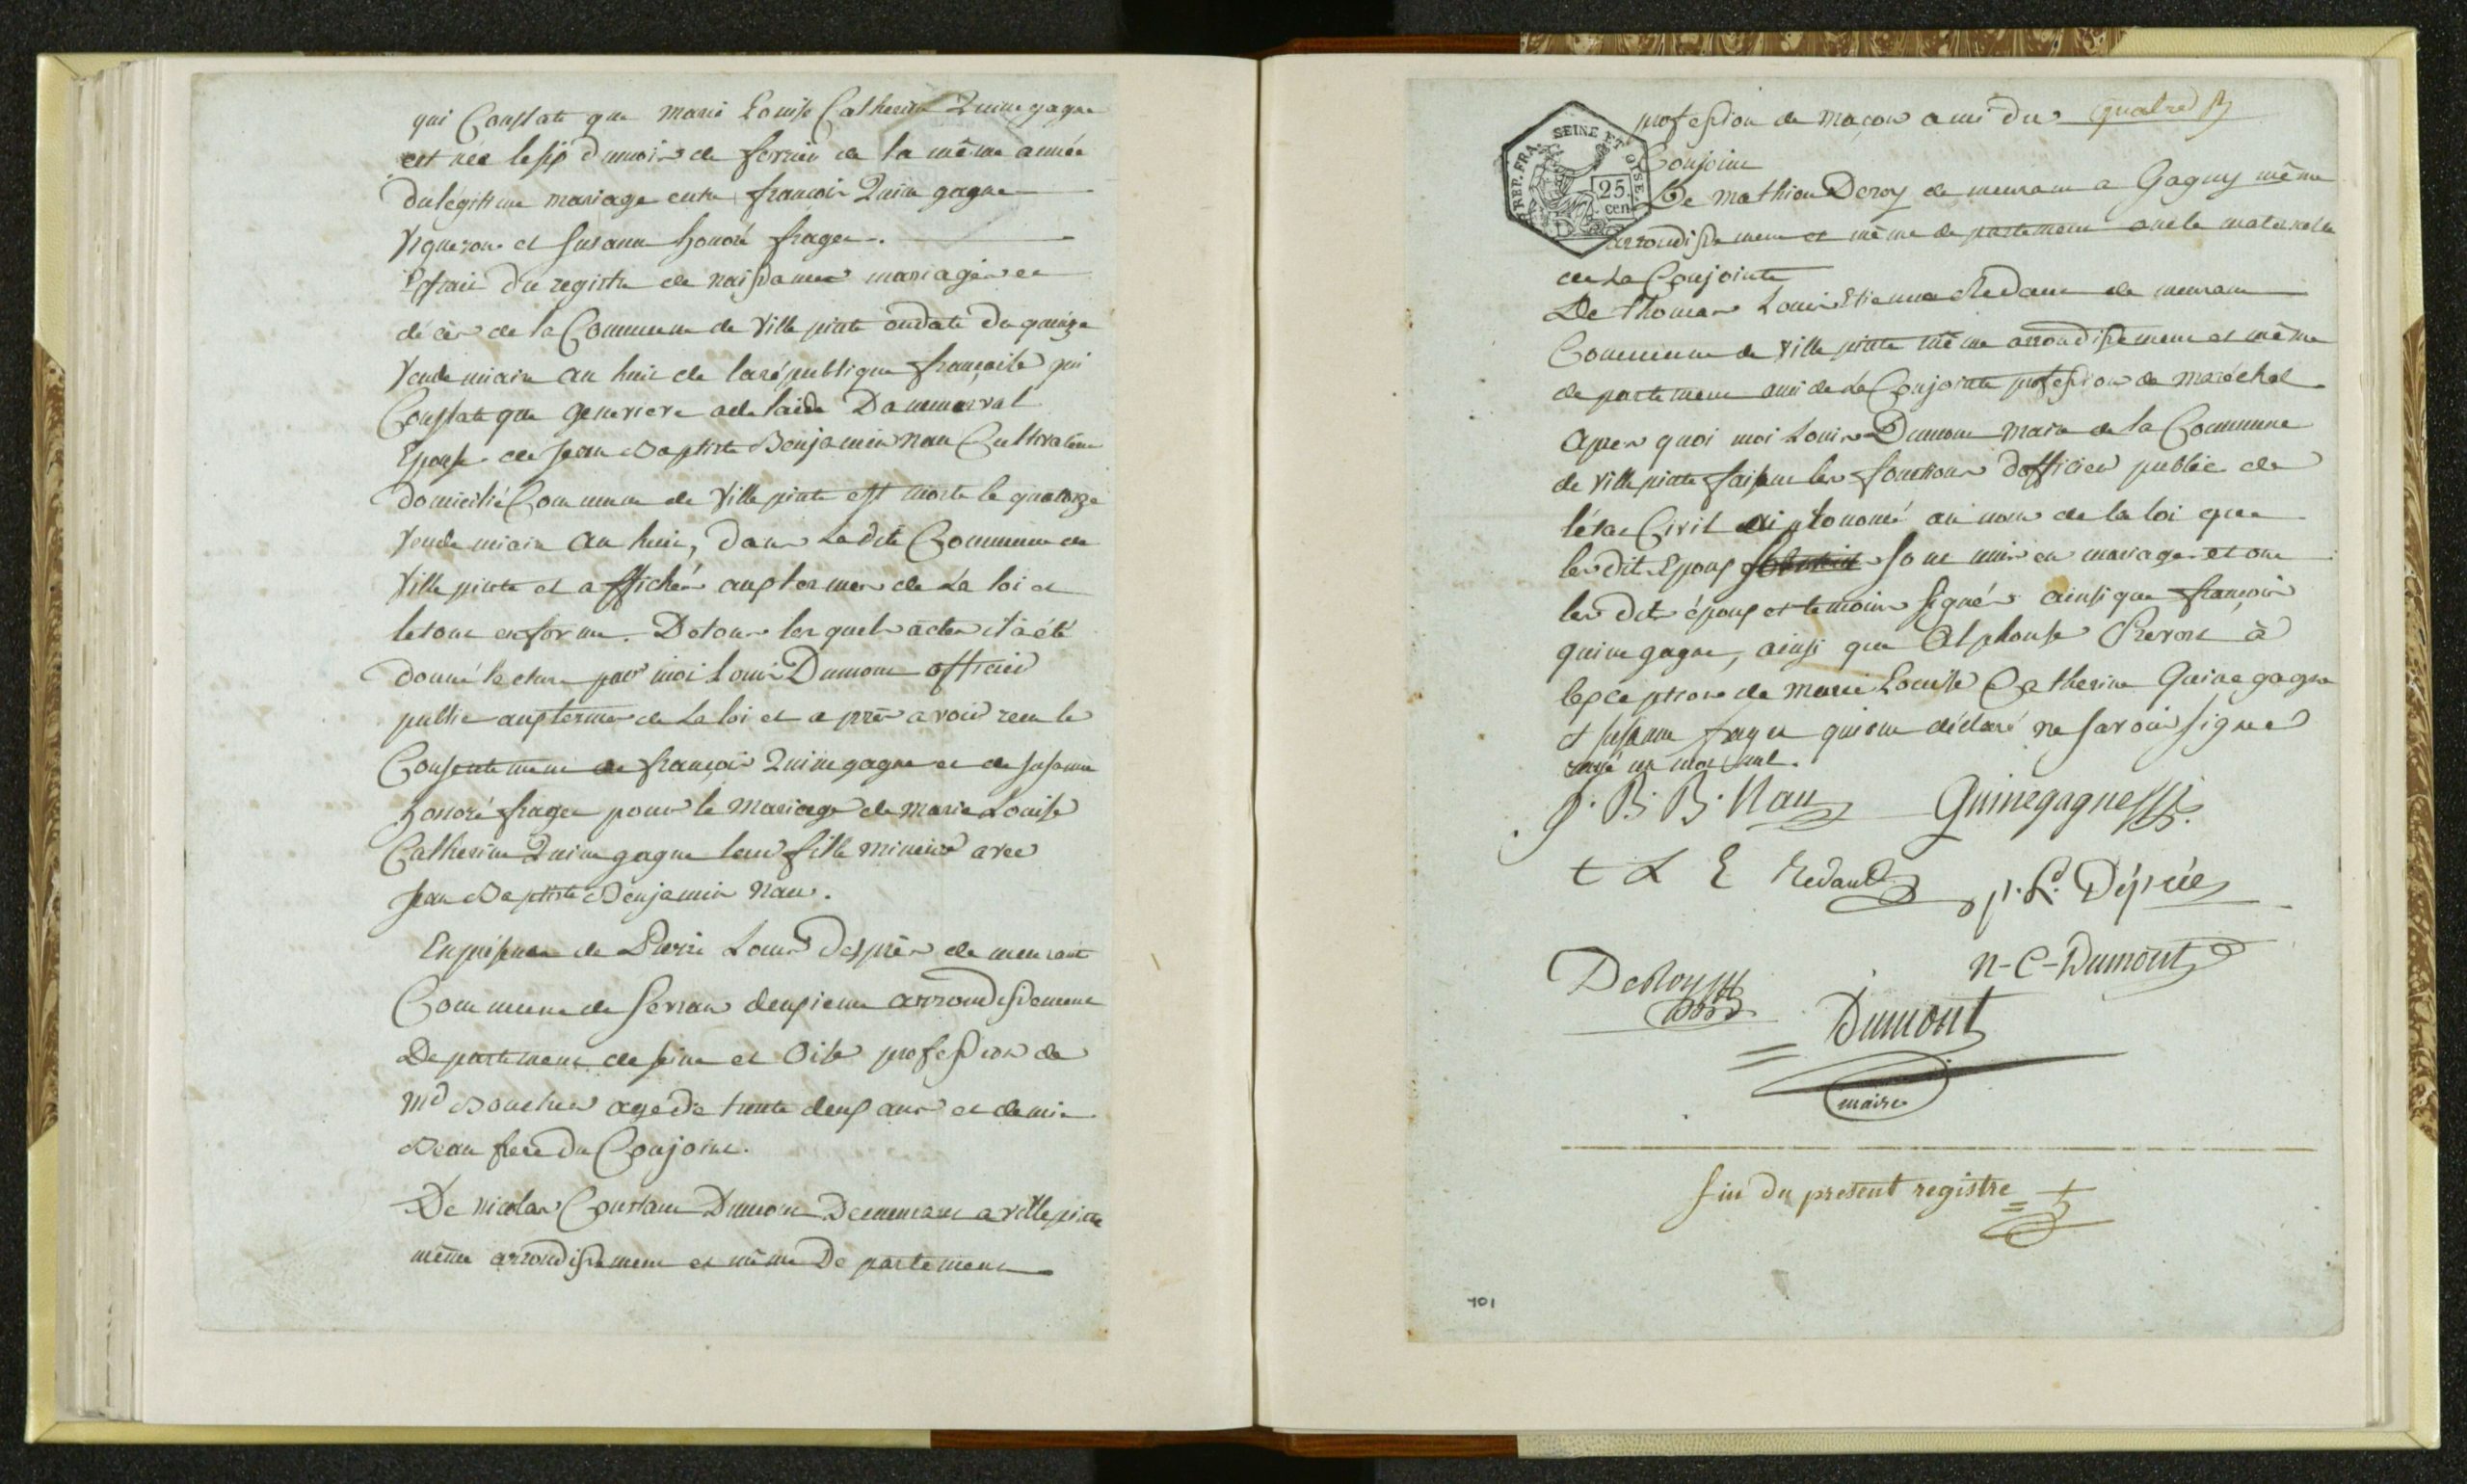 qui Constate que marie Louise Catherine Quinegagne
est née le six du mois de fevrier de la même année
du légitime mariage entre françois Quinegagne
Vigneron et Susanne honoré frager.
Extrait du registre de naissance mariages et
décès de la Commune de Villepinte en date du quinze
Vendemiaire an huit de la république française qui
Constate que genevieve adelaide Dammarval
Epouse de jean Baptiste Benjamin nau Cultivateur
domicilié Commune de Villepinte est morte le quatorze
Vendemiaire an huit, dans la dite Commune de
Villepinte et affichés aux termes de la loi et
le tout en forme. De tous les quels actes il a été
donné lecture par moi Louis Dumont officier
public aux termes de la loi et après avoir recu le
Consentement de françois Quinegagne et de susanne
honoré frager pour le mariage de marie Louise
Catherine Quinegagne leur fille mineure avec
jean Baptiste Benjamin nau.
En présence de Pierre Louis Desprès demeurant
Commune de Sevran deuxieme arrondissement
Departement de seine et Oise profession de
Md Boucher agé de trente deux ans et demie
Beau frere du Conjoint.
De nicolas Constant Dumont Demeurant a villepinte
même arrondissement et même Departement
profession de maçon ami du quatre
Conjoint
REP. FRA. SEINE ET OISE
25. cen
De mathieu Deroy demeurant a Gagny même
arrondissement et même departement oncle maternel
de La Conjointe
De thomas Louis Etienne Redaut demeurant
Commune de villepinte même arrondissement et même
departement ami de La Conjointe profession de maréchal
après quoi moi Louis Dumont maire de la Commune
de villepinte faisant les fonctions d'officier public de
l'état Civil ai prononcé au nom de la loi que
les dit Epoux sont unis en mariage et ont
les dits époux et temoins signés ainsi que françois
quinegagne, ainsi que Alphonse à
lexception de marie Louise Catherine Quinegagne
et susanne frager qui ont déclaré ne savoir signer
rayé un mot nul.
J. B. B. Nau Quinegagne
t L E Redaut p. L. Déprés
DeRoy n-C-Dumont
Dumont
maire
fin du present registre
101